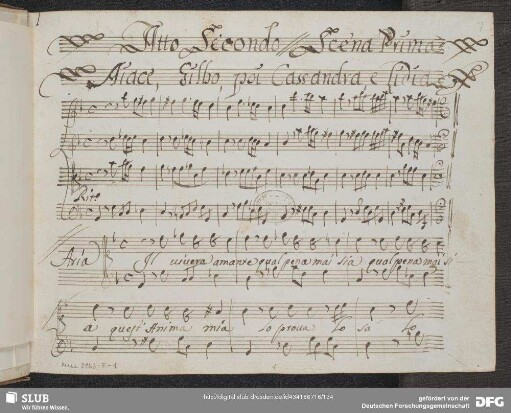 Atto Secondo Scena Prima
Aiace, Gilbo, poi Cassandra e Lidia
Rito
Aria
Il vivere amante qual pena mai sia qual pena mai si
a quest Anima mia lo prova lo sa lo
SLUB
Wir führen Wissen.
http://digital.slub-dresden.de/id434166716/134
gefördert von der
Deutschen Forschungsgemeinschaft
DFG